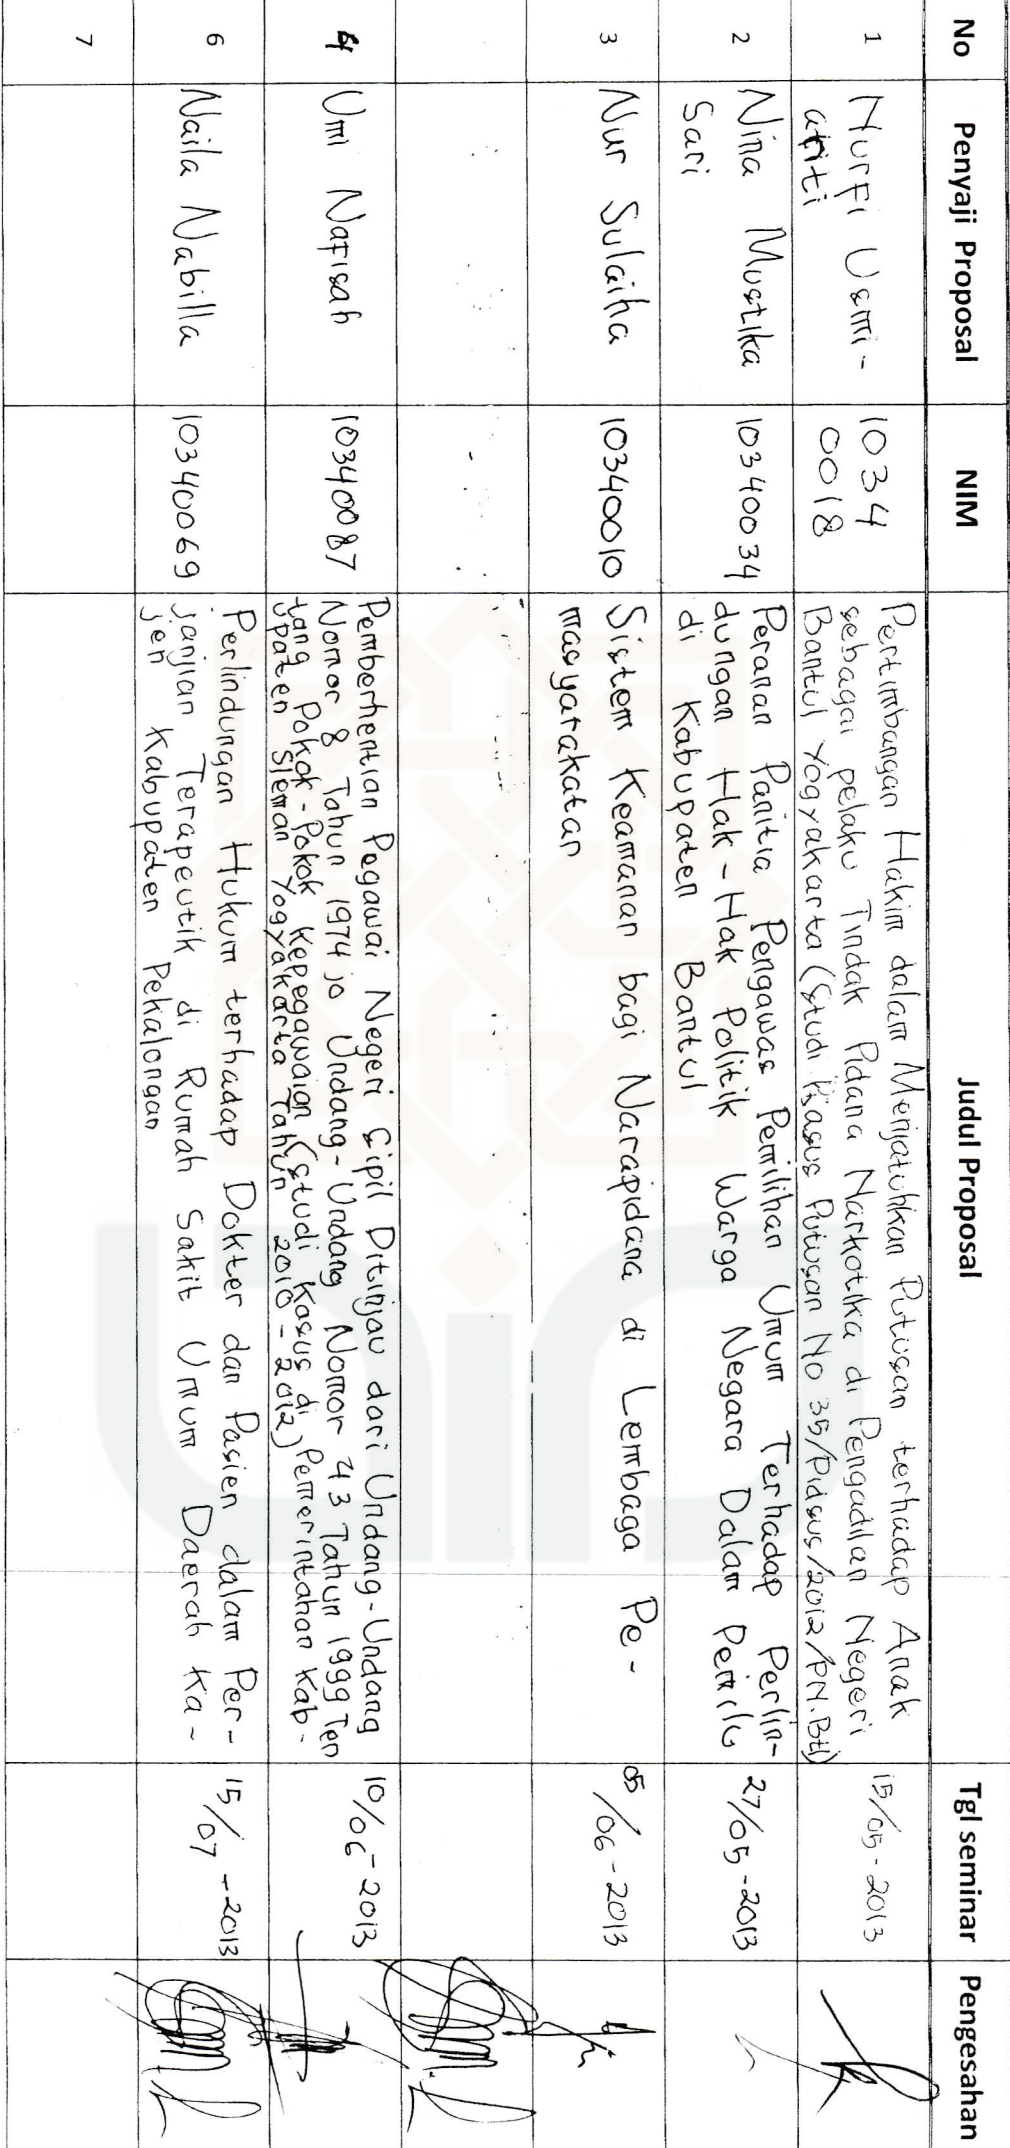 No Penyaji Proposal NIM Judul Proposal Tgl seminar Pengesahan
1 Nurfi Usmi- 1034 Pertimbangan Hakim dalam Menjatuhkan Putusan terhadap Anak 15/05-2013
atiti 0018 sebagai pelaku Tindak Pidana Narkotika di Pengadilan Negeri
Bantul Yogyakarta (Studi Kasus Putusan No 35/Pidsus/2012/PN.Btl)
2 Nina Mustika 10340034 Peranan Panitia Pengawas Pemilihan Umum Terhadap Perlin- 27/05-2013
Sari dungan Hak-Hak Politik Warga Negara Dalam Pemilu
di Kabupaten Bantul
3 Nur Sulaiha 10340010 Sistem Keamanan bagi Narapidana di Lembaga Pe- 05/06-2013
masyarakatan
4 Umi Nafisah 10340087 Pemberhentian Pegawai Negeri Sipil Ditinjau dari Undang-Undang 10/06-2013
Nomor 8 Tahun 1974 jo Undang-Undang Nomor 43 Tahun 1999 Ten
tang Pokok-Pokok Kepegawaian (Studi Kasus di Pemerintahan Kab-
upaten Sleman Yogyakarta Tahun 2010-2012)
6 Naila Nabilla 10340069 Perlindungan Hukum terhadap Dokter dan Pasien dalam Per- 15/07-2013
janjian Terapeutik di Rumah Sakit Umum Daerah Ka-
jen Kabupaten Pekalongan
7